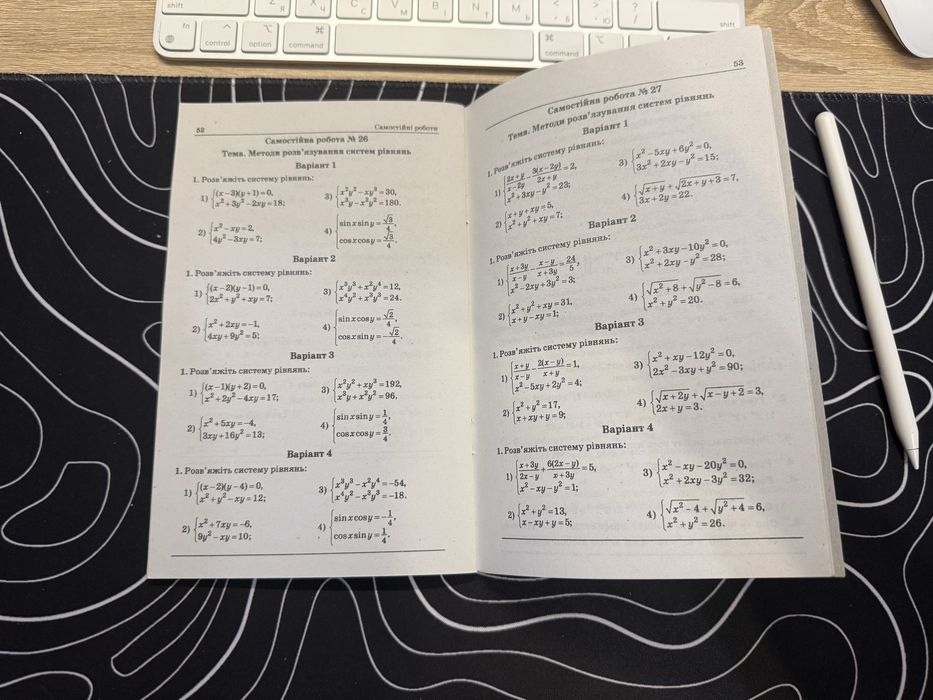 shift
Z
Я
X
Ч
C
С
V
М
B
И
N
Т
M
Ь
<
Б
>
Ю
?
/
shift
fn
control
option
command
command
52 Самостійні роботи
Самостійна робота № 26
Тема. Методи розв'язування систем рівнянь
Варіант 1
1. Розв'яжіть систему рівнянь:
1) {(x−3)(y+1)=0, x²+3y²−2xy=18; 3) {x²y²−xy³=30, x³y−x²y²=180.
2) {x²−xy=2, 4y²−3xy=7; 4) {sin x sin y=√3/4, cos x cos y=√3/4.
Варіант 2
1. Розв'яжіть систему рівнянь:
1) {(x−2)(y−1)=0, 2x²+y²+xy=7; 3) {x³y³+x²y⁴=12, x⁴y²+x³y³=24.
2) {x²+2xy=−1, 4xy+9y²=5; 4) {sin x cos y=√2/4, cos x sin y=−√2/4.
Варіант 3
1. Розв'яжіть систему рівнянь:
1) {(x−1)(y+2)=0, x²+2y²−4xy=17; 3) {x²y²+xy³=192, x³y+x²y²=96,
2) {x²+5xy=−4, 3xy+16y²=13; 4) {sin x sin y=1/4, cos x cos y=3/4.
Варіант 4
1. Розв'яжіть систему рівнянь:
1) {(x−2)(y−4)=0, x²+y²−xy=12; 3) {x³y³−x²y⁴=−54, x⁴y²−x³y³=−18.
2) {x²+7xy=−6, 9y²−xy=10; 4) {sin x cos y=−1/4, cos x sin y=1/4.
53
Самостійна робота № 27
Тема. Методи розв'язування систем рівнянь
Варіант 1
1. Розв'яжіть систему рівнянь:
1) {(2x+y)/(x−2y)−3(x−2y)/(2x+y)=2, x²+3xy−y²=23; 3) {x²−5xy+6y²=0, 3x²+2xy−y²=15;
2) {x+y+xy=5, x²+y²+xy=7; 4) {√(x+y)+√(2x+y+3)=7, 3x+2y=22.
Варіант 2
1. Розв'яжіть систему рівнянь:
1) {(x+3y)/(x−y)−(x−y)/(x+3y)=24/5, x²−2xy+3y²=3; 3) {x²+3xy−10y²=0, x²+2xy−y²=28;
2) {x²+y²+xy=31, x+y−xy=1; 4) {√(x²+8)+√(y²−8)=6, x²+y²=20.
Варіант 3
1. Розв'яжіть систему рівнянь:
1) {(x+y)/(x−y)−2(x−y)/(x+y)=1, x²−5xy+2y²=4; 3) {x²+xy−12y²=0, 2x²−3xy+y²=90;
2) {x²+y²=17, x+xy+y=9; 4) {√(x+2y)+√(x−y+2)=3, 2x+y=3.
Варіант 4
1. Розв'яжіть систему рівнянь:
1) {(x+3y)/(2x−y)+6(2x−y)/(x+3y)=5, x²−xy−y²=1; 3) {x²−xy−20y²=0, x²+2xy−3y²=32;
2) {x²+y²=13, x−xy+y=5; 4) {√(x²−4)+√(y²+4)=6, x²+y²=26.